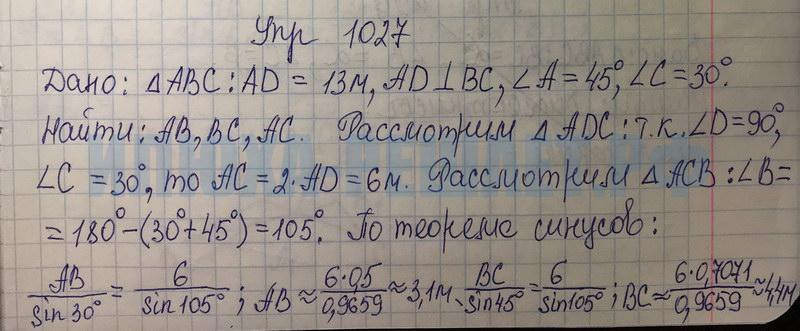 Упр 1027
Дано: △ABC: AD = 13м, AD⊥BC, ∠A = 45°, ∠C = 30°.
Найти: AB, BC, AC. Рассмотрим △ADC: т.к. ∠D = 90°,
∠C = 30°, то AC = 2·AD = 6м. Рассмотрим △ACB: ∠B =
= 180° - (30° + 45°) = 105°. По теореме синусов:
AB/sin 30° = 6/sin 105°; AB ≈ 6·05/0,9659 ≈ 3,1м. BC/sin 45° = 6/sin 105°; BC ≈ 6·0,7071/0,9659 ≈ 4,4м